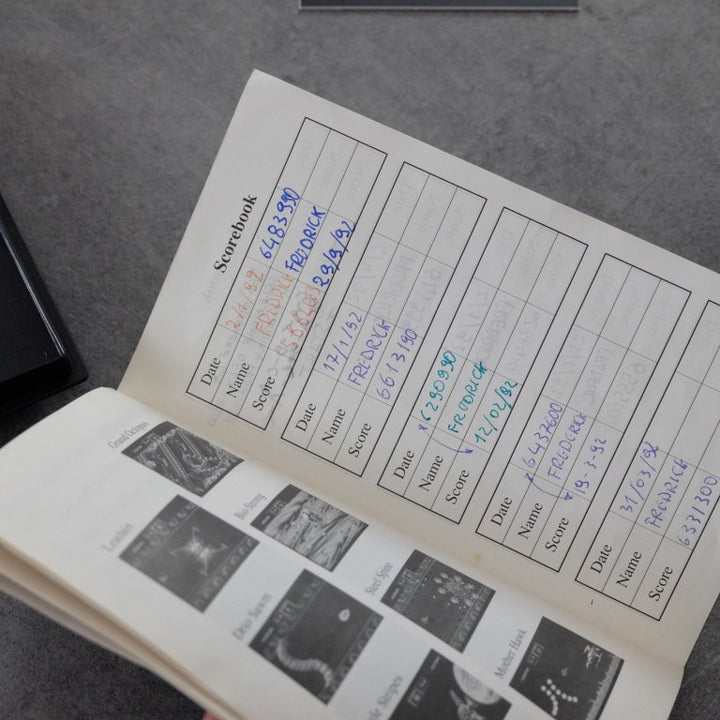 Scorebook
Date 2/1 92 6483990
Name FREDRICK FREDRICK
Score 29/9/92
Date 17/1/92
Name FREDRICK
Score 6613190
Date 6290990
Name FREDRICK
Score 12/02/92
Date 6437600
Name FREDRICK
Score 19-3-92
Date 31/03/92
Name FREDRICK
Score 6331300
Grand Octopus
Bio-Strong
Steel Spine
Mother Hawk
Stripes